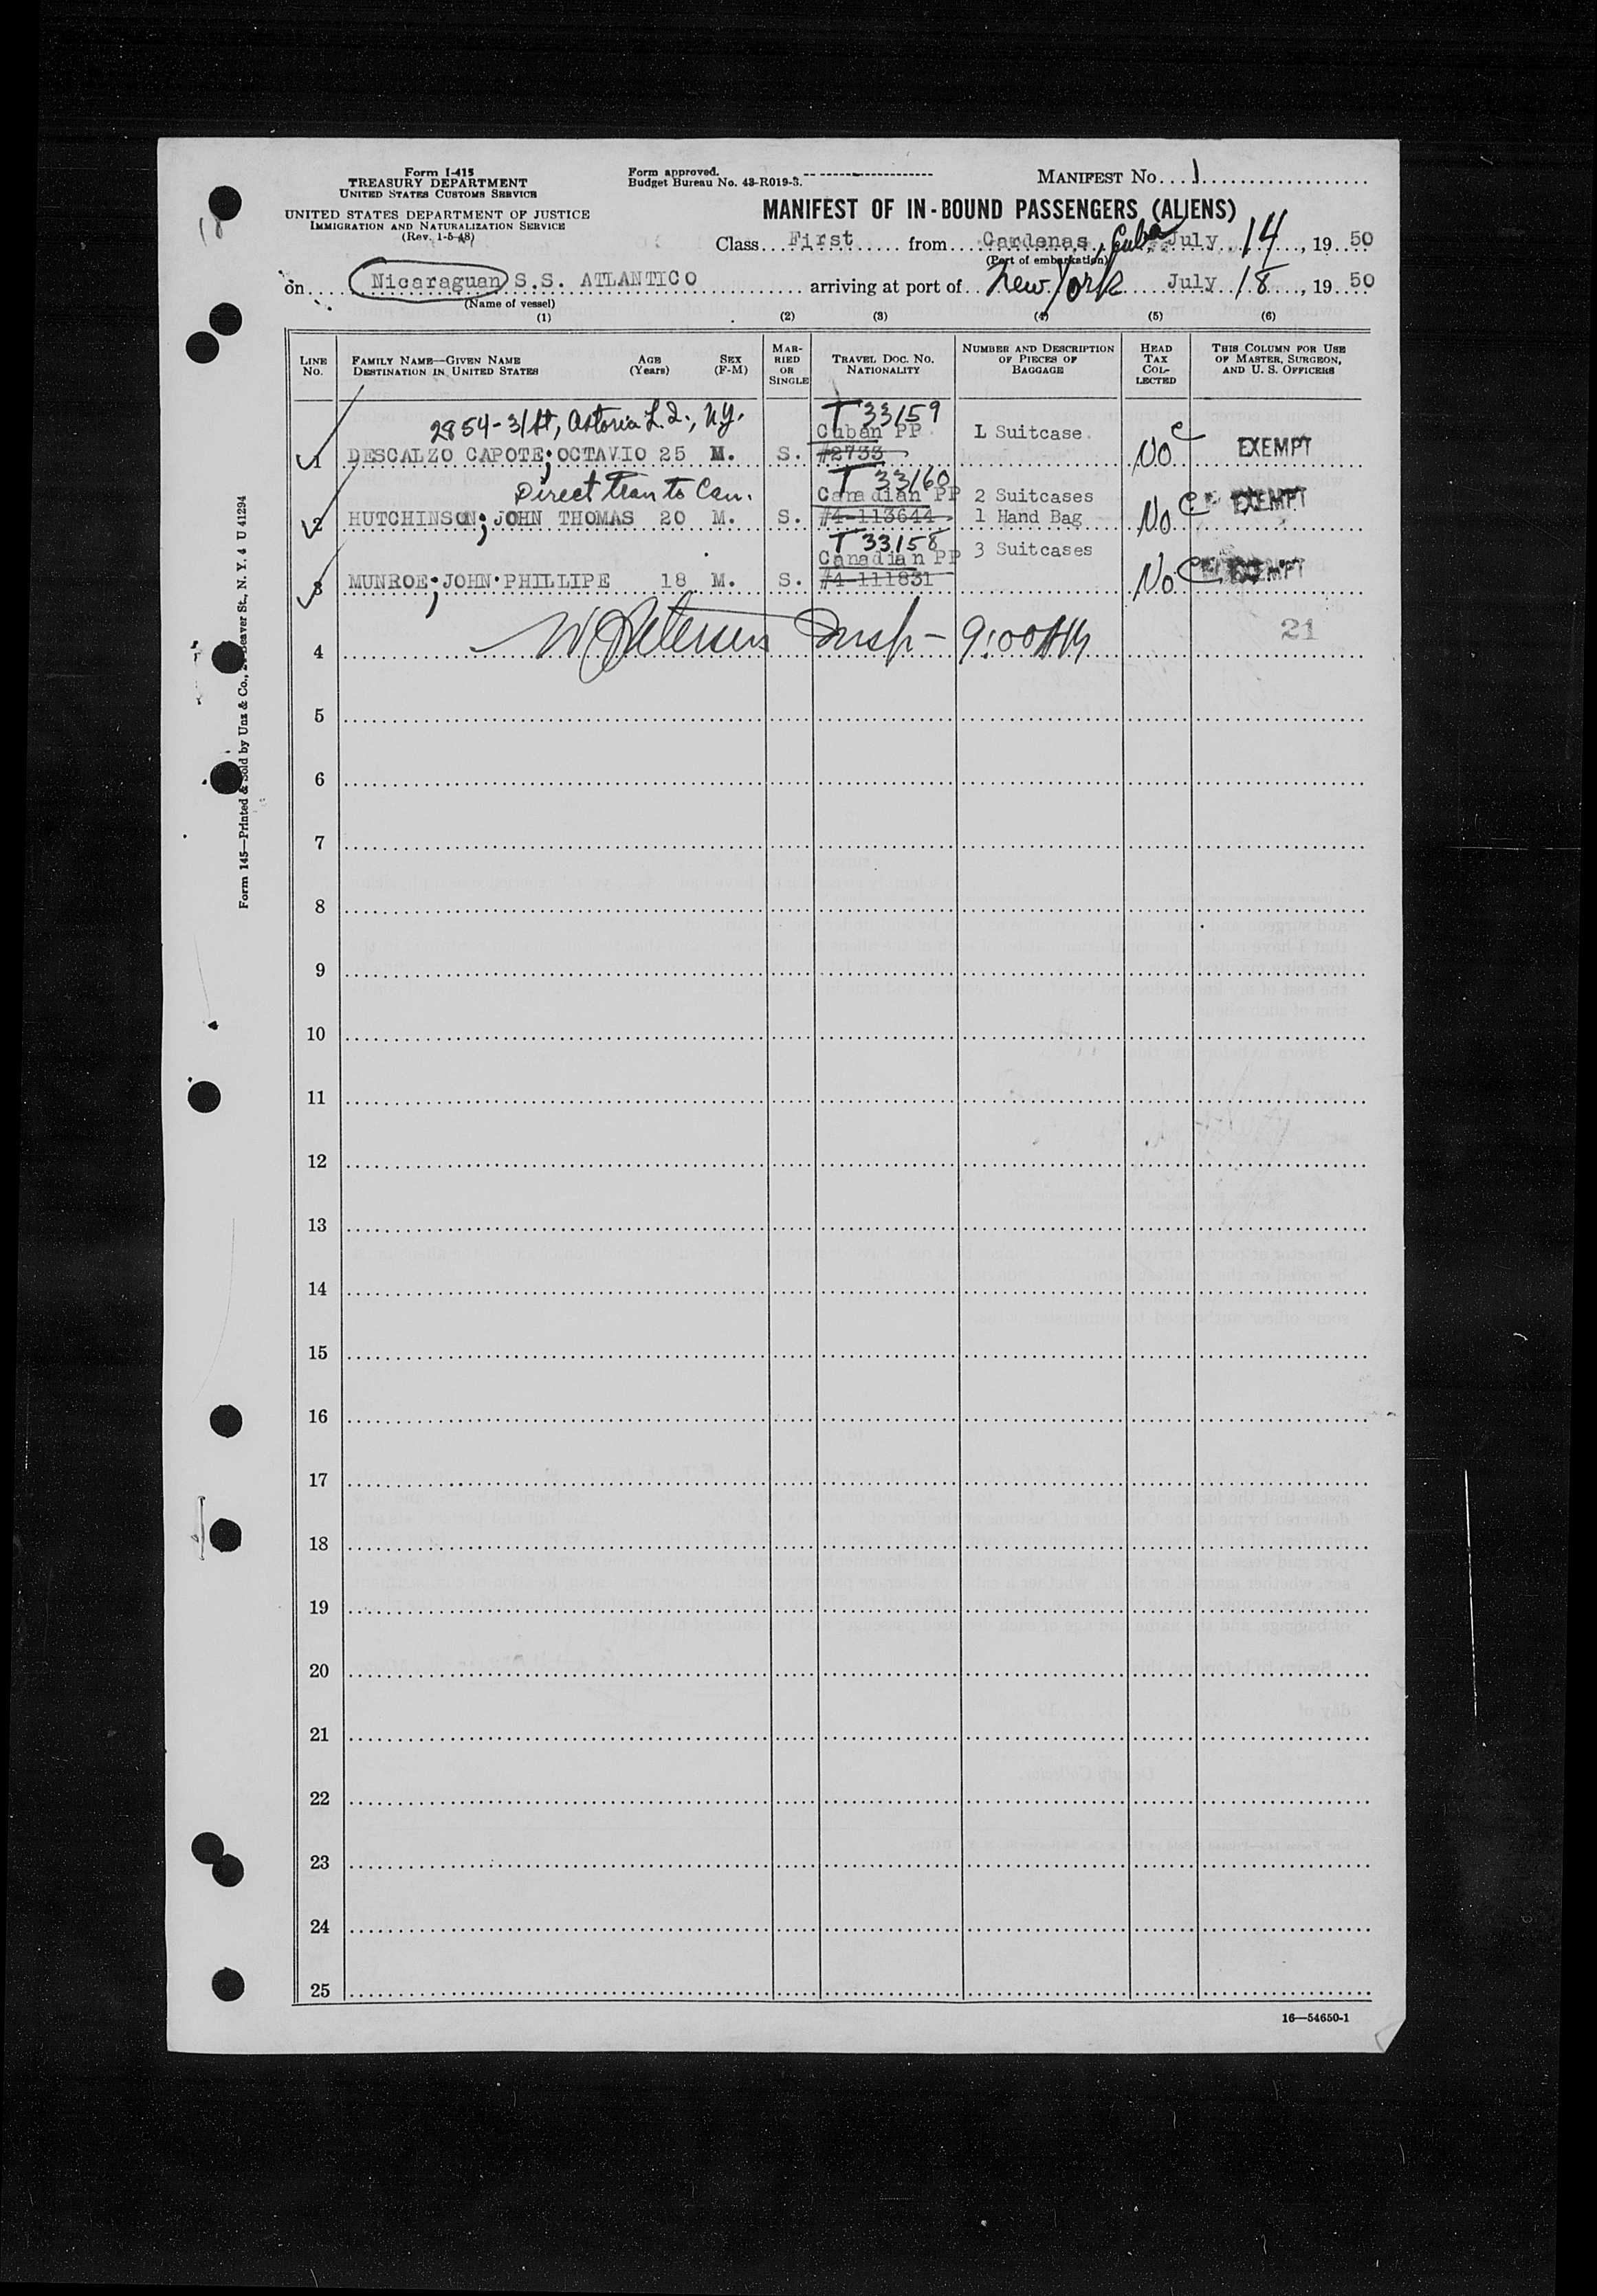 Form I-415
TREASURY DEPARTMENT
UNITED STATES CUSTOMS SERVICE
UNITED STATES DEPARTMENT OF JUSTICE
IMMIGRATION AND NATURALIZATION SERVICE
(Rev. 1-5-48)
Form approved.
Budget Bureau No. 43-R019-3.
MANIFEST No. 1
MANIFEST OF IN-BOUND PASSENGERS (ALIENS)
Class First from Cardenas, Cuba July 14, 1950
(Port of embarkation)
on Nicaraguan S.S. ATLANTICO arriving at port of New York July 18, 1950
(Name of vessel)
(1) (2) (3) (4) (5) (6)
LINE No. FAMILY NAME—GIVEN NAME DESTINATION IN UNITED STATES AGE (Years) SEX (F-M) MARRIED OR SINGLE TRAVEL DOC. NO. NATIONALITY NUMBER AND DESCRIPTION OF PIECES OF BAGGAGE HEAD TAX COLLECTED THIS COLUMN FOR USE OF MASTER, SURGEON, AND U. S. OFFICERS
2854-31 St, Astoria L.I., N.Y. T 33159
Cuban PP 1 Suitcase
1 DESCALZO CAPOTE; OCTAVIO 25 M. S. #2733 No EXEMPT
Direct tran to Can. T 33160
Canadian PP 2 Suitcases
2 HUTCHINSON; JOHN THOMAS 20 M. S. #4-113644 1 Hand Bag No EXEMPT
T 33158
Canadian PP 3 Suitcases
3 MUNROE; JOHN PHILLIPE 18 M. S. #4-111831 No EXEMPT
4 Petersen Insp- 9:00 AM 21
5
6
7
8
9
10
11
12
13
14
15
16
17
18
19
20
21
22
23
24
25
16—54650-1
Form 145—Printed & Sold by Unz & Co., Beaver St., N. Y. 4 U 41294
18